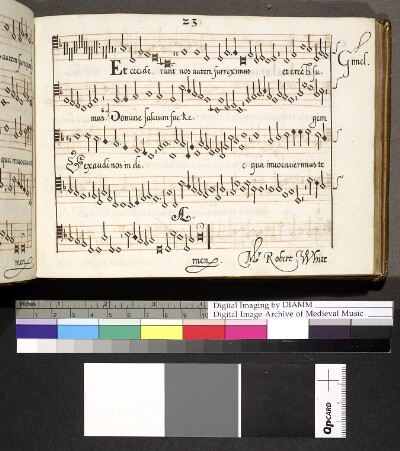 23.
Et cecide runt nos autem surreximus et erecti su. Gimel.
mus. Domine saluum fac Re gem
Et exaudi nos in di e qua inuocauerimus te
A
men Mr Robert White
inches 1 2 3 4
Digital Imaging by DIAMM
Digital Image Archive of Medieval Music
QPCARD